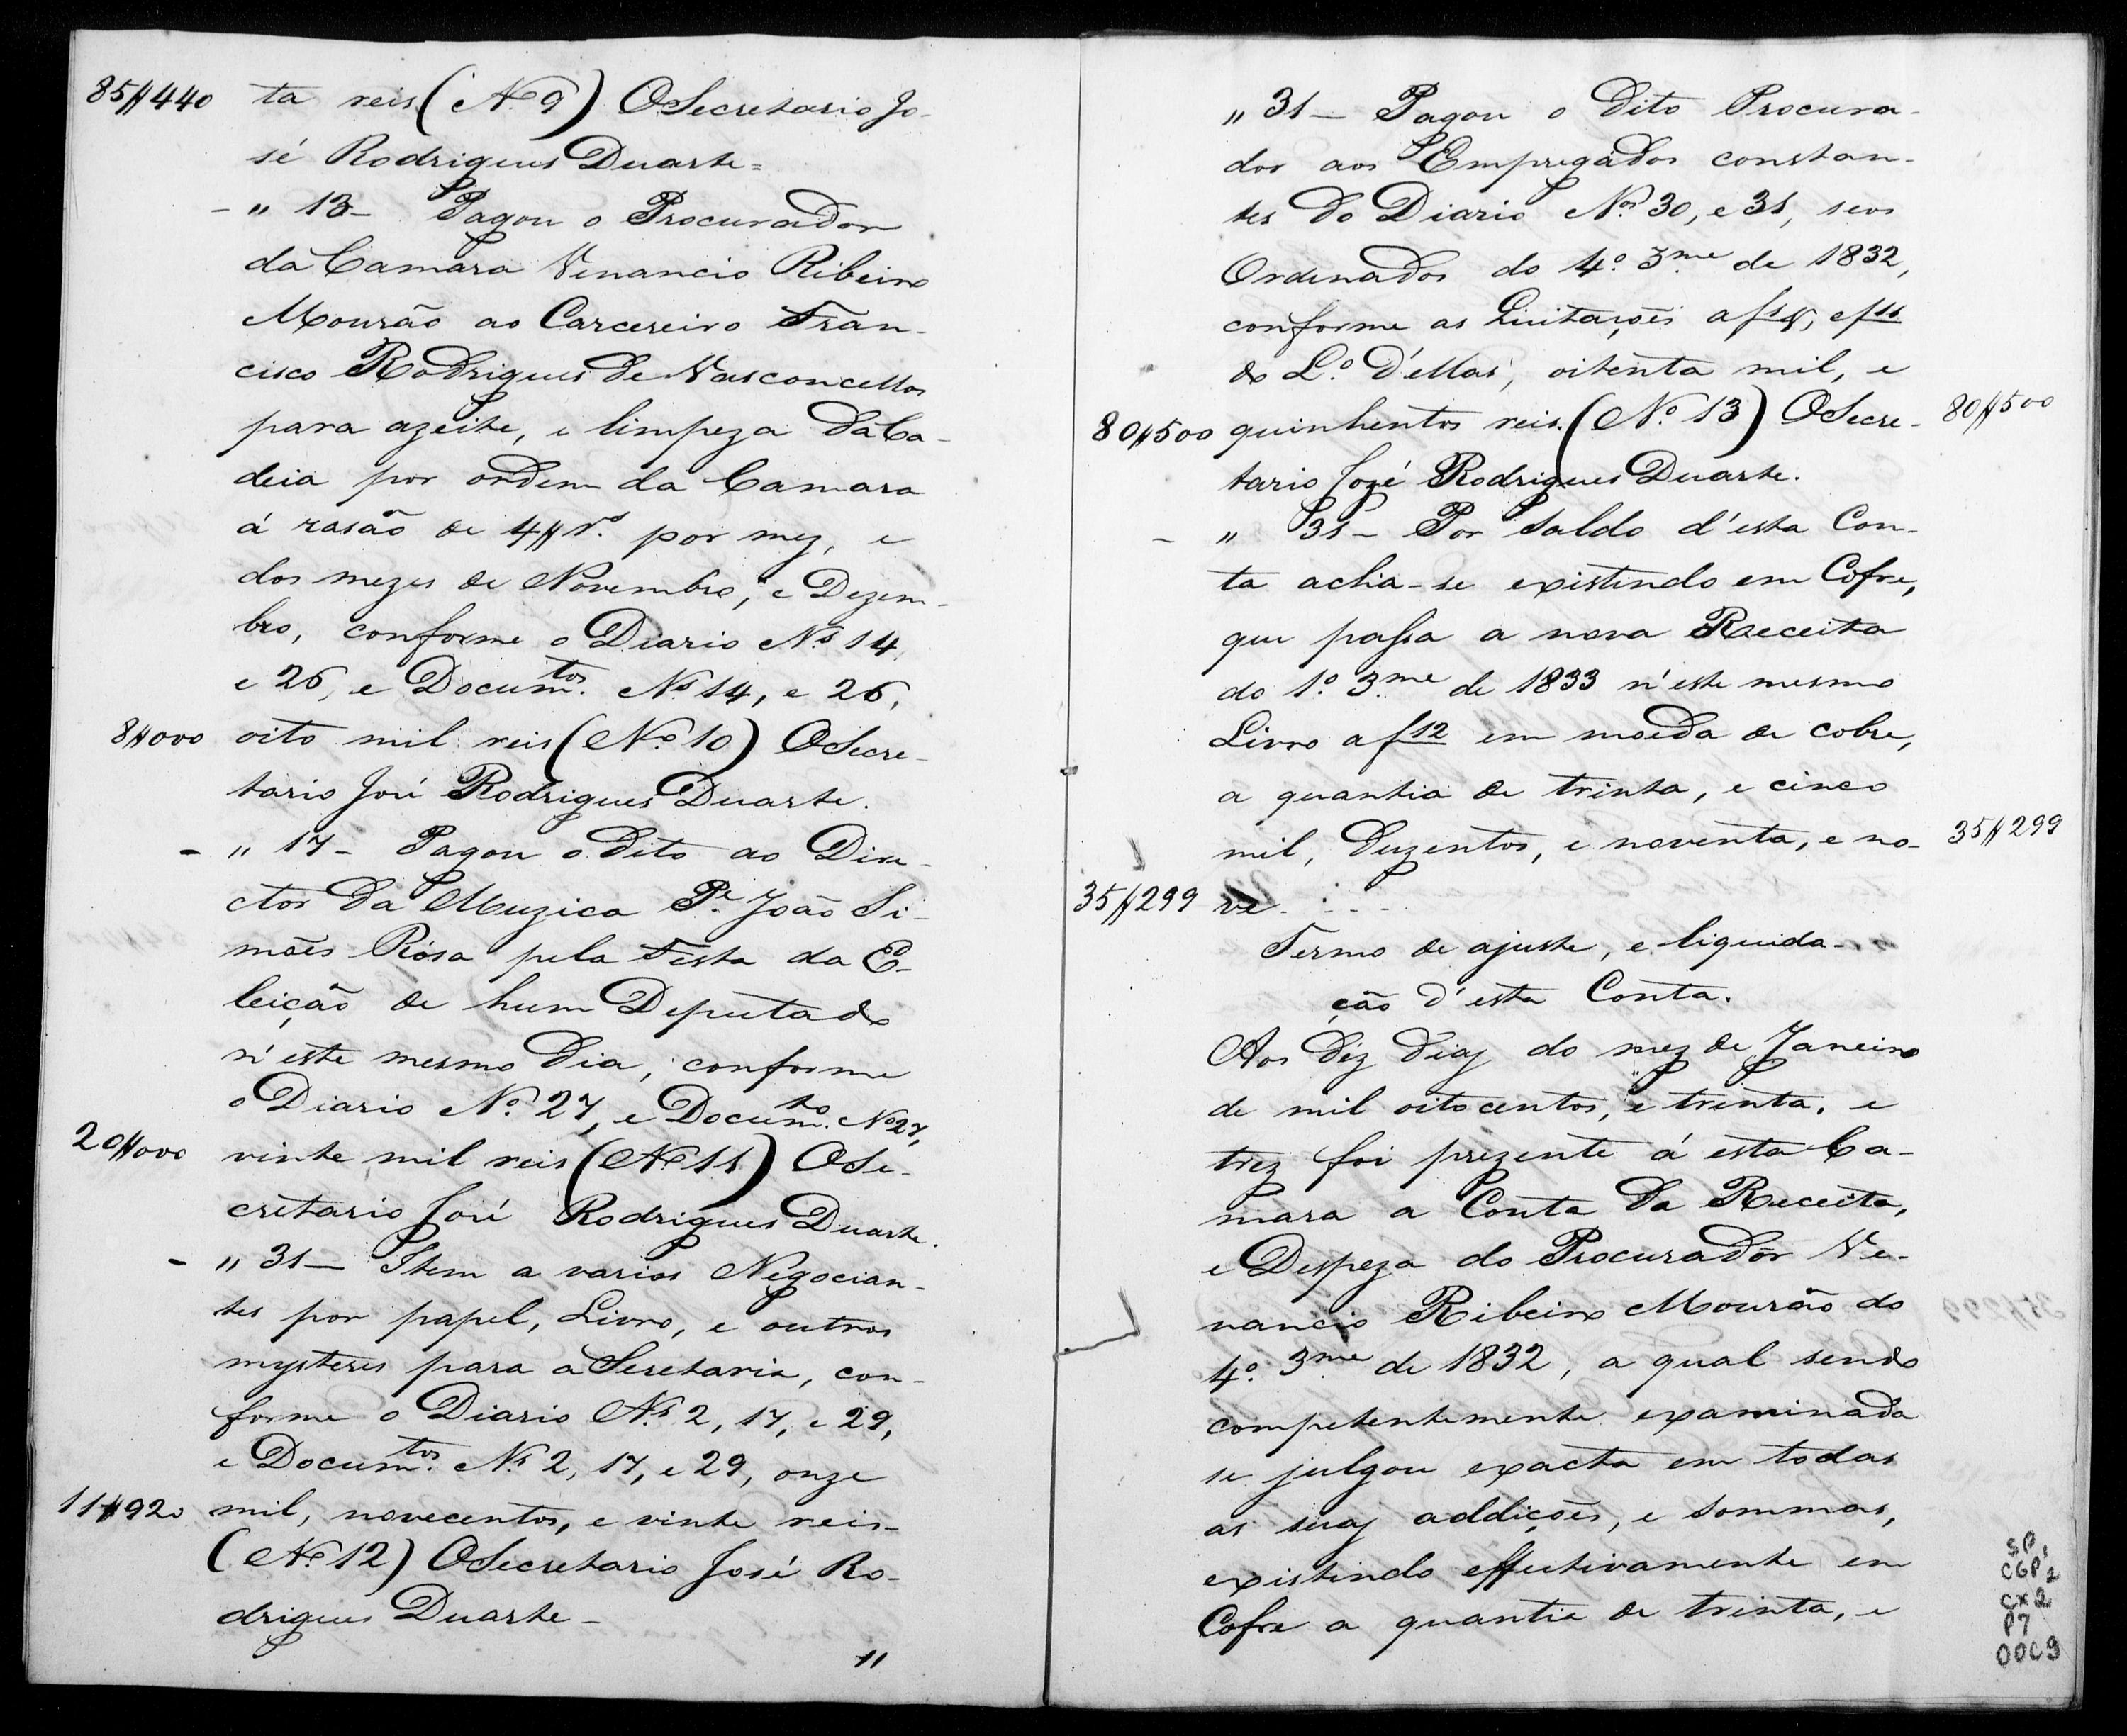 85$440 ta reis (Nº 9) O Secretario Jo-
sé Rodrigues Duarte=
- " 13 - Pagou o Procurador
da Camara Venancio Ribeiro
Mourão ao Carcereiro Fran-
cisco Rodrigues de Vasconcellos
para azeite, e limpeza da Ca-
deia por ordem da Camara
á rasão de 4$rs. por mez, e
dos mezes de Novembro, e Dezem-
bro, conforme o Diario Nos 14
e 26, e Documtos. Nos 14, e 26,
8$000 oito mil reis (Nº 10) O Secre-
tario José Rodrigues Duarte.
- " 17 - Pagou o dito ao Dire-
ctor da Muzica Pe. João Si-
mões Rosa pela Festa da E-
leição de hum Deputado
n'este mesmo dia, conforme
o Diario Nº 27, e Documto. Nº 27,
20$000 vinte mil reis (Nº 11) O Se-
cretario José Rodrigues Duarte.
- " 31 - Item a varios Negocian-
tes por papel, Livro, e outros
mysteres para a Secretaria, con-
forme o Diario Nos 2, 17, e 29,
e Documtos. Nos 2, 17, e 29, onze
11$920 mil, novecentos, e vinte reis-
(Nº 12) O Secretario José Ro-
drigues Duarte -
"
" 31 - Pagou o dito Procura-
dor aos Empregados constan-
tes do Diario Nos 30, e 31, seos
Ordenados do 4º 3me de 1832,
conforme as Quitações
do Lº d'ellas, oitenta mil, e
80$500 quinhentos reis. (Nº 13) O Secre- 80$500
tario José Rodrigues Duarte.
- " 31 - Por Saldo d'esta Con-
ta acha-se existindo em Cofre,
que passa a nova Receita
do 1º 3me de 1833 n'este mesmo
Livro a f 12 em moeda de cobre,
a quantia de trinta, e cinco
mil, duzentos, e noventa, e no- 35$299
35$299 ve
Termo de ajuste, e liquida-
ção d'esta Conta.
Aos déz dias do mez de Janeiro
de mil oitocentos, e trinta, e
trez foi prezente á esta Ca-
mara a Conta da Receita,
e Despeza do Procurador Ve-
nancio Ribeiro Mourão do
4º 3me de 1832, a qual sendo
competentemente examinada
se julgou exacta em todas
as suas addições, e sommas,
existindo effectivamente em
Cofre a quantia de trinta, e
SP,
CGP2
CX2
P7
DOC9